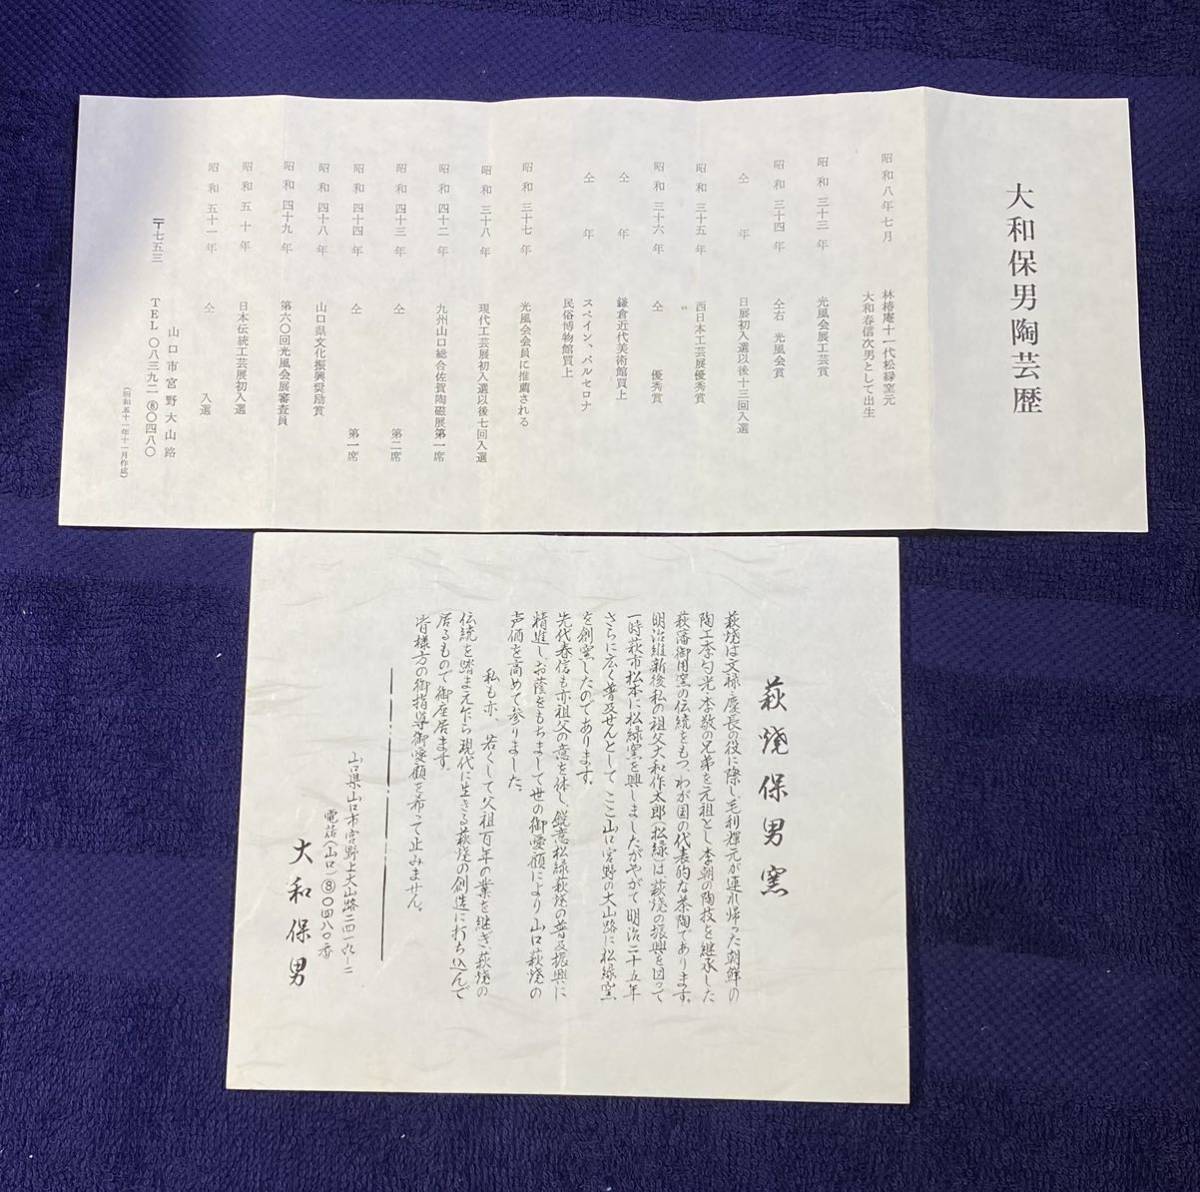 大和保男陶芸歴
昭和八年七月 林椿庵十一代松緑窯元
大和春信次男として出生
昭和三十三年 光風会展工芸賞
昭和三十四年 仝右 光風会賞
仝年 日展初入選以後十三回入選
昭和三十五年 西日本工芸展優秀賞
昭和三十六年 仝 〃 優秀賞
仝年 鎌倉近代美術館買上
仝年 スペイン、バルセロナ
民俗博物館買上
昭和三十七年 光風会会員に推薦される
昭和三十八年 現代工芸展初入選以後七回入選
昭和四十二年 九州山口総合佐賀陶磁展第一席
昭和四十三年 仝 第二席
昭和四十四年 仝 第一席
昭和四十八年 山口県文化振興奨励賞
昭和四十九年 第六〇回光風会展審査員
昭和五十年 日本伝統工芸展初入選
昭和五十一年 仝 入選
〒七五三 山口市宮野大山路
TEL〇八三九二⑧〇四八〇
(昭和五十一年十一月作成)
萩焼保男窯
萩焼は文禄・慶長の役に際し、毛利輝元が連れ帰った朝鮮の
陶工李勺光・李敬の兄弟を元祖とし李朝の陶技を継承した
萩藩御用窯の伝統をもつ、わが国の代表的な茶陶であります。
明治維新後私の祖父大和作太郎(松緑)は、萩焼の振興を図って
一時萩市松本に松緑窯を興しましたがやがて明治二十五年
さらに広く普及せんとして ここ山口宮野の大山路に松緑窯
を創窯したのであります。
先代春信も亦祖父の意を体し、鋭意松緑萩焼の普及振興に
精進し、お蔭をもちまして世の御愛顧により山口萩焼の
声価を高めて参りました。
私も亦、若くして父祖百年の業を継ぎ、萩焼の
伝統を踏まえ乍ら現代に生きる萩焼の創造に打ち込んで
居るもので御座居ます。
皆様方の御指導御愛顧を希って止みません。
山口県山口市宮野上大山路二四一の一二
電話(山口)⑧〇四八〇番
大和保男